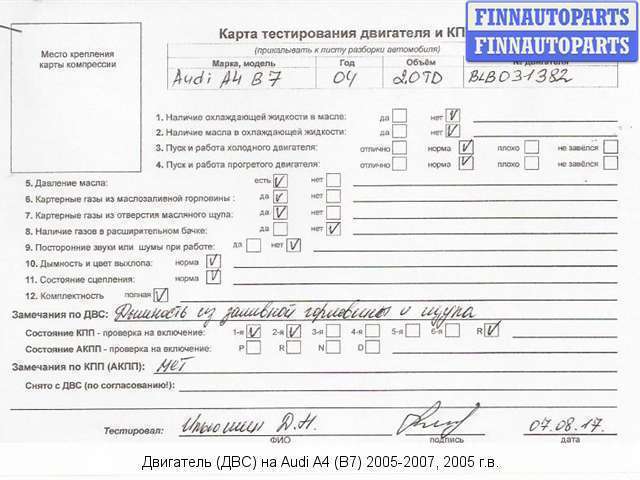 FINNAUTOPARTS
FINNAUTOPARTS
Карта тестирования двигателя и КП
(прикалывать к листу разборки автомобиля)
Место крепления карты компрессии
Марка, модель Год Объём № двигателя
Audi A4 B7 04 2.0TD BLB031382
1. Наличие охлаждающей жидкости в масле: да нет
2. Наличие масла в охлаждающей жидкости: да нет
3. Пуск и работа холодного двигателя: отлично норма плохо не завёлся
4. Пуск и работа прогретого двигателя: отлично норма плохо не завёлся
5. Давление масла: есть нет
6. Картерные газы из маслозаливной горловины: да нет
7. Картерные газы из отверстия масляного щупа: да нет
8. Наличие газов в расширительном бачке: да нет
9. Посторонние звуки или шумы при работе: да нет
10. Дымность и цвет выхлопа: норма
11. Состояние сцепления: норма
12. Комплектность полная
Замечания по ДВС: Дымность из заливной горловины и щупа
Состояние КПП - проверка на включение: 1-я 2-я 3-я 4-я 5-я 6-я R
Состояние АКПП - проверка на включение: P R N D
Замечания по КПП (АКПП): нет
Снято с ДВС (по согласованию!):
Тестировал: Ильюшин Д.Н. 07.08.17
ФИО подпись дата
Двигатель (ДВС) на Audi A4 (B7) 2005-2007, 2005 г.в.